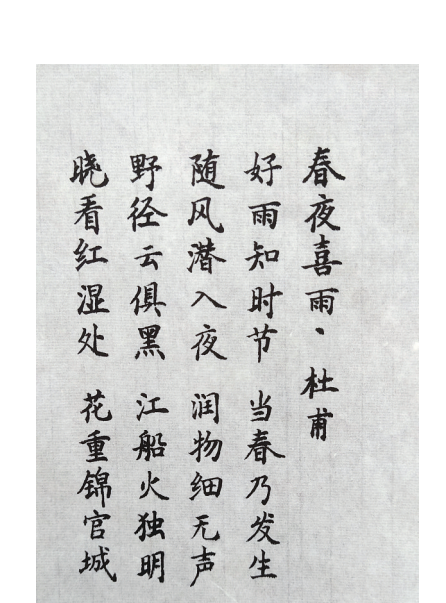 春夜喜雨·杜甫
好雨知时节 当春乃发生
随风潜入夜 润物细无声
野径云俱黑 江船火独明
晓看红湿处 花重锦官城